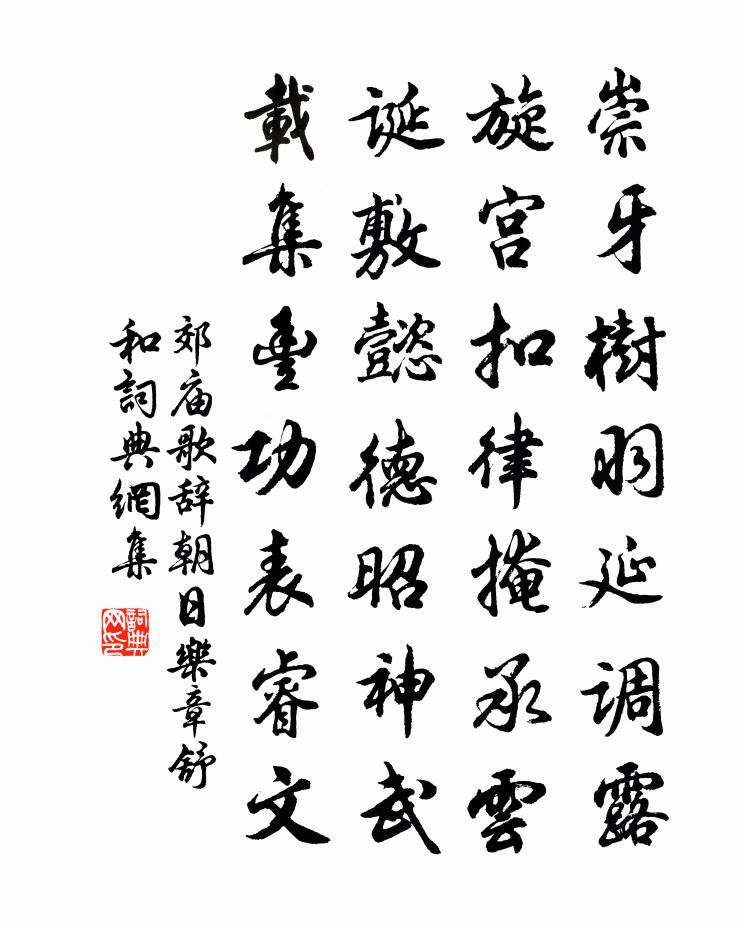 崇牙樹羽延調露
旋宫扣律掩承雲
誕敷懿德昭神武
載集豐功表睿文
郊庙歌辞朝日樂章舒
和詞典網集
詞典網印